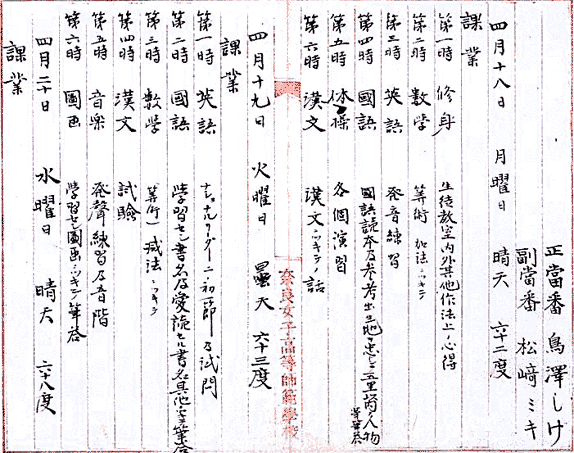 正當番 鳥澤しけ
副當番 松﨑ミキ
四月十八日 月曜日 晴天 六十二度
課業
第一時 修身 生徒教室内外其他作法上ノ心得
第二時 數學 算術 加法ニツキテ
第三時 英語 発音練習
第四時 國語 國語読本及参考出
第五時 体操 各個演習
第六時 漢文 漢文ニツキテノ話
四月十九日 火曜日 曇天 六十三度
課業
第一時 英語 ナショナルリーダー二ノ初節及試問
第二時 國語 學習セシ書名及愛読セル書名其他
第三時 數学 算術 減法ニツキテ
第四時 漢文 試驗
第五時 音楽 発聲練習及音階
第六時 圖画 學習セシ圖画ニツキテ筆答
四月二十日 水曜日 晴天 六十八度
課業
奈良女子高等師範學校